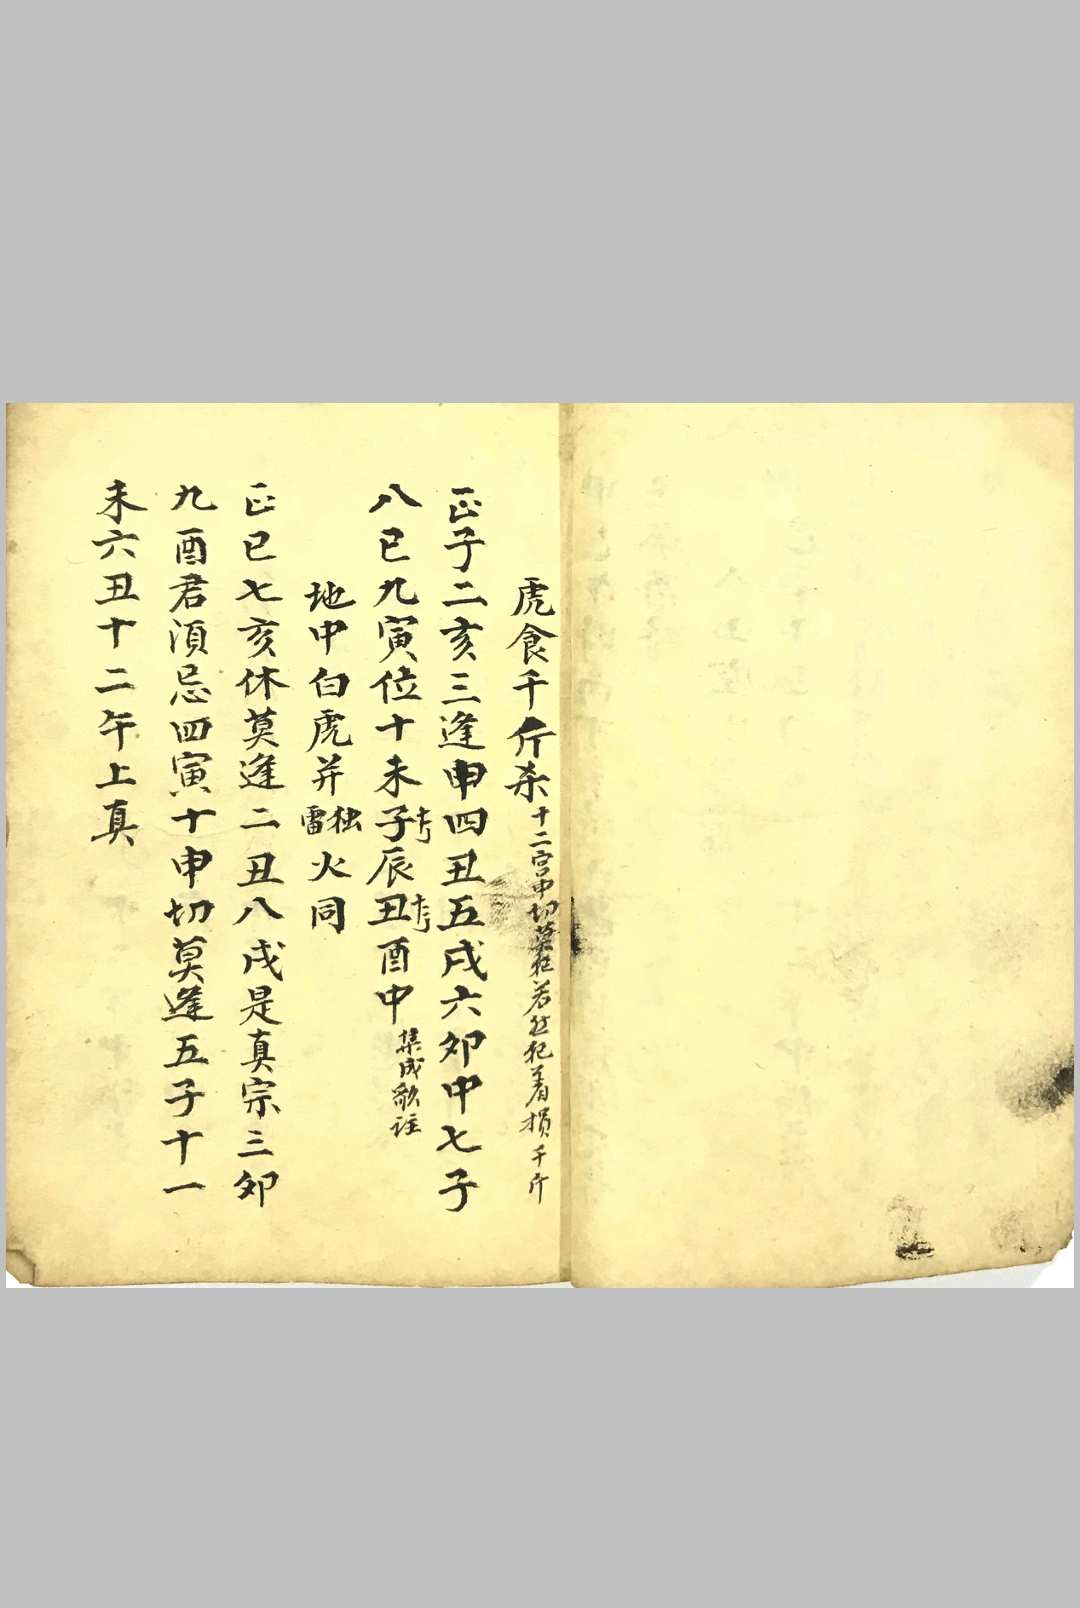 虎食千斤杀十二宫中切莫犯若然犯着损千斤
正子二亥三逢申四丑五戌六卯中七子
八巳九寅位十未子辰丑酉中集成歌註
地中白虎并独雷火同
正巳七亥休莫逢二丑八戌是真宗三卯
九酉君須忌四寅十申切莫逢五子十一
未六丑十二午上真